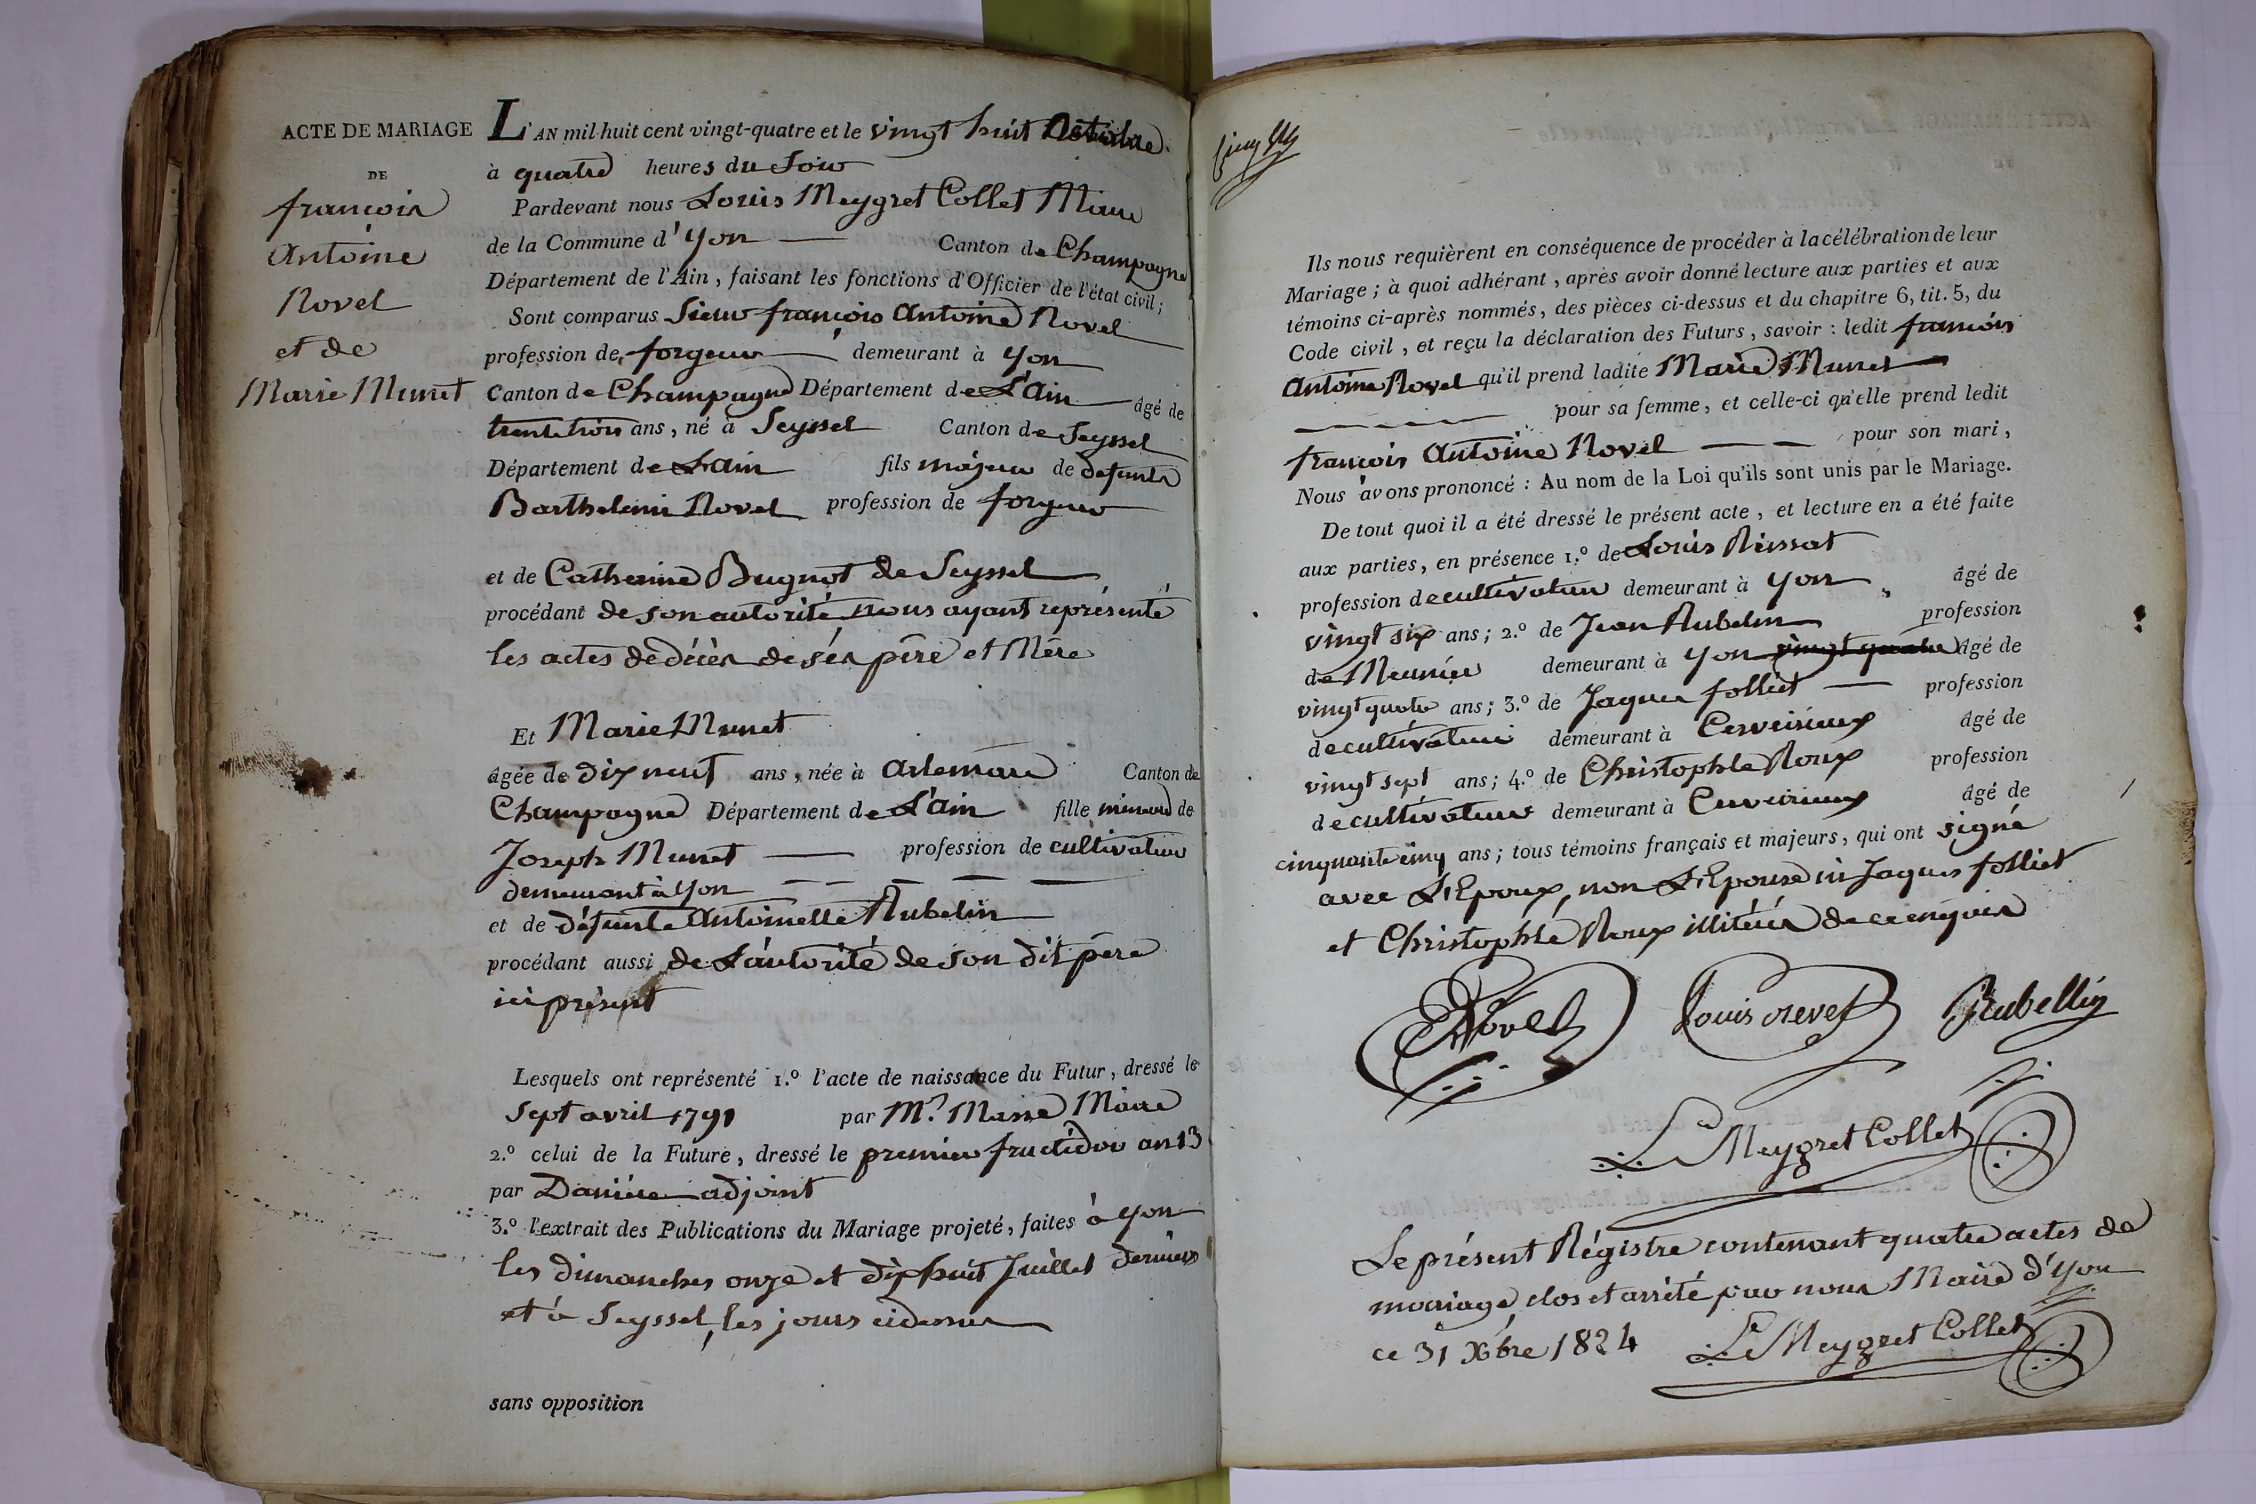 ACTE DE MARIAGE
DE
françois
Antoine
Rovel
et de
Marie Munet
L'AN mil huit cent vingt-quatre et le vingt huit Octobre
à quatre heures du soir
Pardevant nous Louis Meygret Collet Maire
de la Commune d'Yon Canton de Champagne
Département de l'Ain, faisant les fonctions d'Officier de l'état civil;
Sont comparus Sieur françois Antoine Rovel
profession de forgeur demeurant à Yon
Canton de Champagne Département de L'Ain âgé de
trente trois ans, né à Seyssel Canton de Seyssel
Département de L'ain fils majeur de defunts
Barthelemi Rovel profession de forgeur
et de Catherine Bugnot de Seyssel
procédant de son autorité nous ayant représenté
les actes de décès de ses père et Mère
Et Marie Munet
âgée de dix neuf ans, née à Artemare Canton de
Champagne Département de L'ain fille mineure de
Joseph Munet profession de cultivateur
demeurant à Yon
et de défunte Antoinette Rubelin
procédant aussi de L'autorité de son dit père
ici présent
Lesquels ont représenté 1.º l'acte de naissance du Futur, dressé le
Sept avril 1791 par Mr. Masse Maire
2.º celui de la Future, dressé le premier fructidor an 13
par Daniere adjoint
3.º l'extrait des Publications du Mariage projeté, faites à Yon
les dimanches onze et dix huit Juillet derniers
et à Seyssel, les jours cidessus
sans opposition
Ils nous requièrent en conséquence de procéder à la célébration de leur
Mariage; à quoi adhérant, après avoir donné lecture aux parties et aux
témoins ci-après nommés, des pièces ci-dessus et du chapitre 6, tit. 5, du
Code civil, et reçu la déclaration des Futurs, savoir : ledit françois
Antoine Rovel qu'il prend ladite Marie Munet
pour sa femme, et celle-ci qu'elle prend ledit
françois Antoine Rovel pour son mari,
Nous avons prononcé : Au nom de la Loi qu'ils sont unis par le Mariage.
De tout quoi il a été dressé le présent acte, et lecture en a été faite
aux parties, en présence 1.º de Louis
profession de cultivateur demeurant à Yon âgé de
vingt six ans; 2.º de Jean Rubelin profession
de Meunier demeurant à Yon vingt quatre âgé de
vingt quatre ans; 3.º de Jaques folliet profession
de cultivateur demeurant à Cerveirieux âgé de
vingt sept ans; 4.º de Christophle Roux profession
de cultivateur demeurant à Cerveirieux âgé de
cinquante cinq ans; tous témoins français et majeurs, qui ont signé
avec L'Epoux, non L'Epouse ni Jaques folliet
et Christophle Roux illiterés de ce enquis
Rovel Louis Rubellin
L. Meygret Collet
Le présent Régistre contenant quatre actes de
mariage, clos et arrêté par nous Maire d'Yon
ce 31 Xbre 1824 L. Meygret Collet